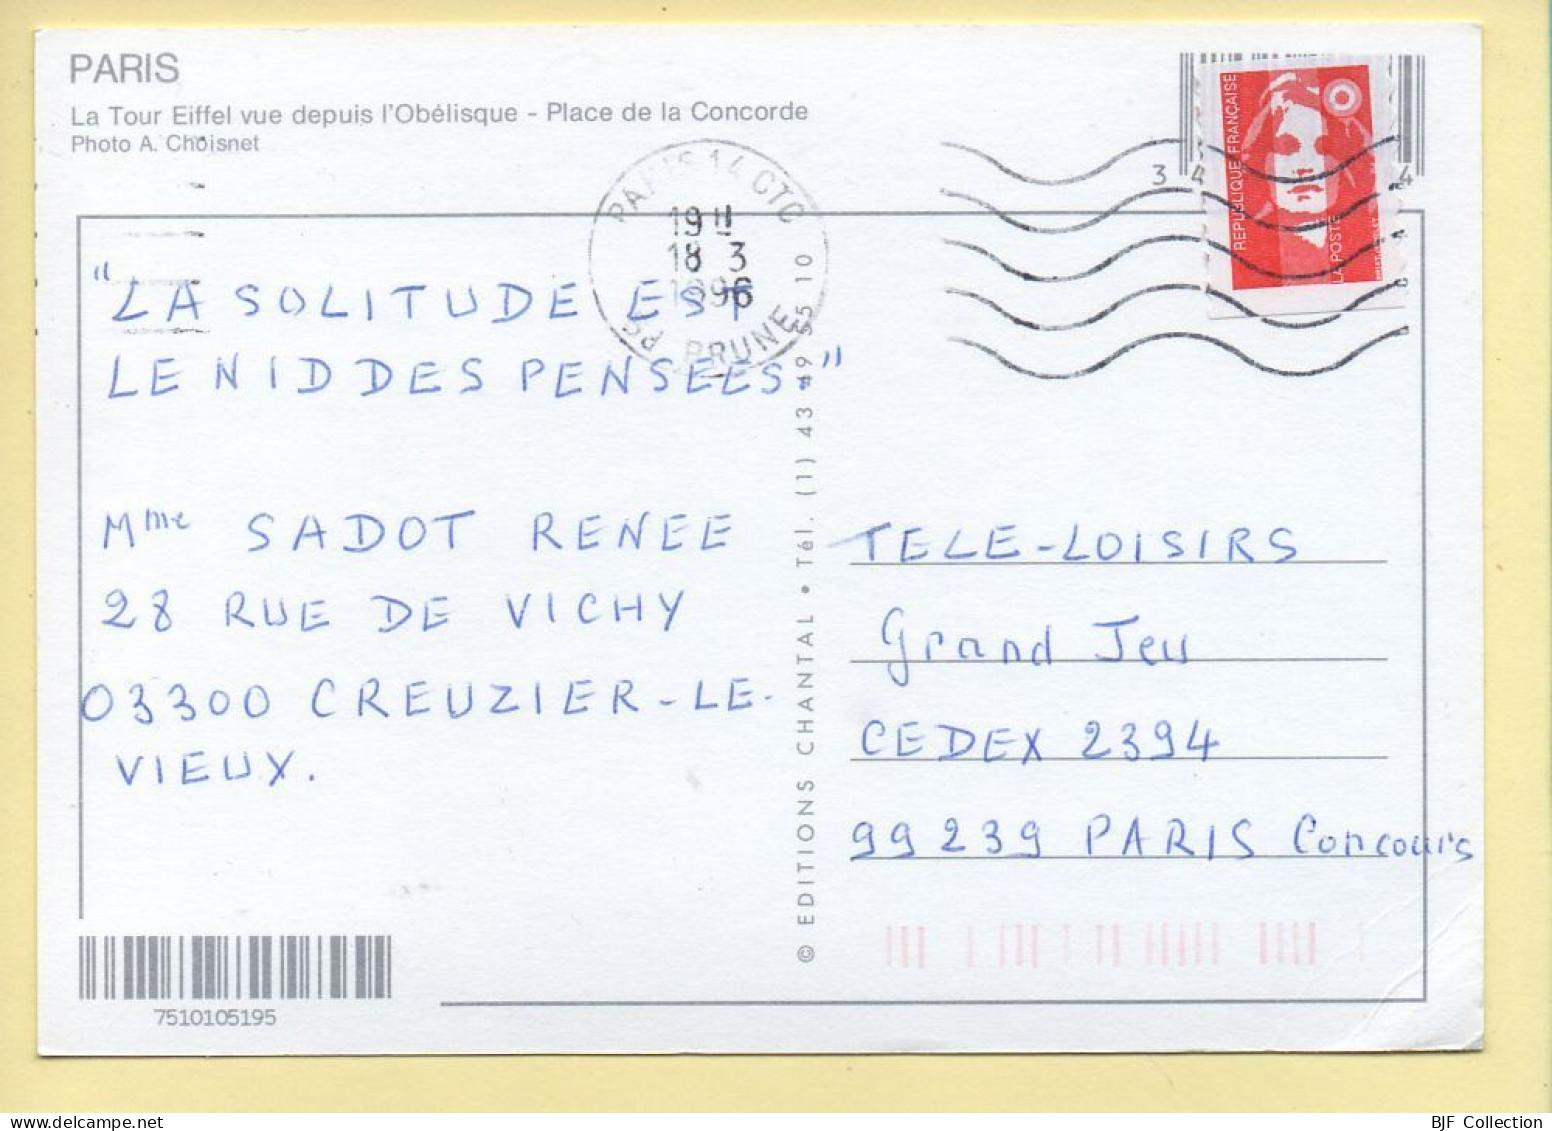 PARIS
La Tour Eiffel vue depuis l'Obélisque - Place de la Concorde
Photo A. Choisnet
PARIS 14 CTC
19 H
18 3
1996
PRUNE
3 4
4
REPUBLIQUE FRANÇAISE
LA POSTE
"LA SOLITUDE EST
LE NID DES PENSEES"
Mme SADOT RENEE
28 RUE DE VICHY
03300 CREUZIER-LE-
VIEUX.
© EDITIONS CHANTAL • Tél. (1) 43 49 55 10
TELE-LOISIRS
Grand Jeu
CEDEX 2394
99239 PARIS Concours
7510105195
BJF Collection